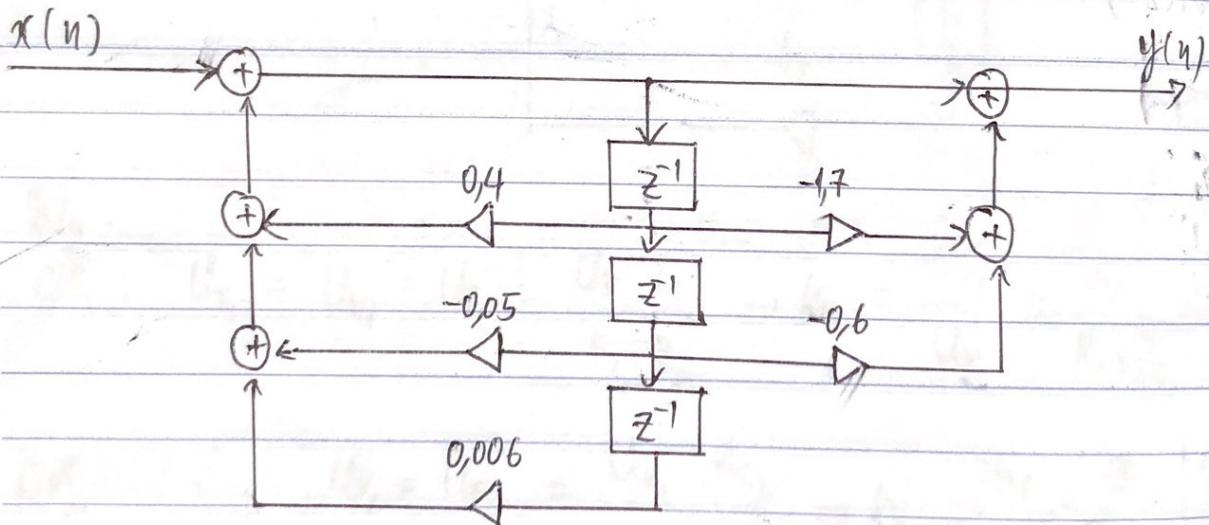 x(n)
y(n)
+
+
z⁻¹
0,4
-1,7
+
+
z⁻¹
-0,05
-0,6
+
z⁻¹
0,006